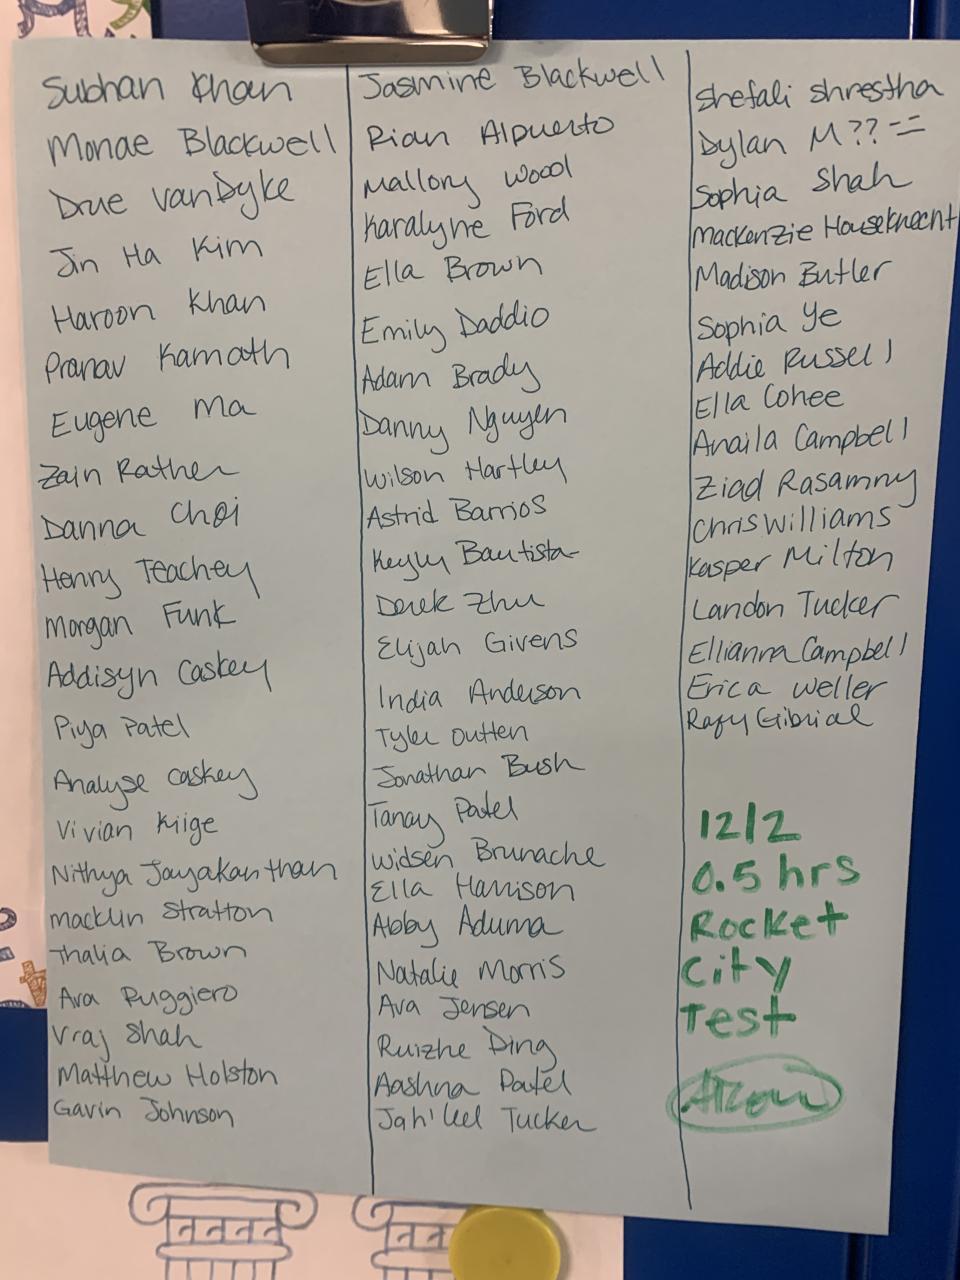 Subhan Khan
Monae Blackwell
Drue vanDyke
Jin Ha Kim
Haroon Khan
Pranav Kamath
Eugene Ma
Zain Rather
Danna Choi
Henry Teachey
Morgan Funk
Addisyn Caskey
Piya Patel
Analyse Caskey
Vivian Kiige
Nithya Jayakanthan
Macklin Stratton
Thalia Brown
Ava Ruggiero
Vraj Shah
Matthew Holston
Gavin Johnson
Jasmine Blackwell
Rian Alpuerto
Mallory Wood
Karalyne Ford
Ella Brown
Emily Daddio
Adam Brady
Danny Nguyen
Wilson Hartley
Astrid Barrios
Keyly Bautista
Derek Zhu
Elijah Givens
India Anderson
Tyler Outten
Jonathan Bush
Tanay Patel
Widsen Brunache
Ella Harrison
Abby Aduma
Natalie Morris
Ava Jensen
Ruizhe Ding
Aashna Patel
Tucker
Shefali Shrestha
Dylan M??
Sophia Shah
Mackenzie Houseknecht
Madison Butler
Sophia Ye
Addie Russell
Ella Cohee
Anaila Campbell
Ziad Rasamny
Chris Williams
Kasper Milton
Landon Tucker
Ellianna Campbell
Erica Weller
Rafy Gibrial
12/2
0.5 hrs
Rocket
City
Test